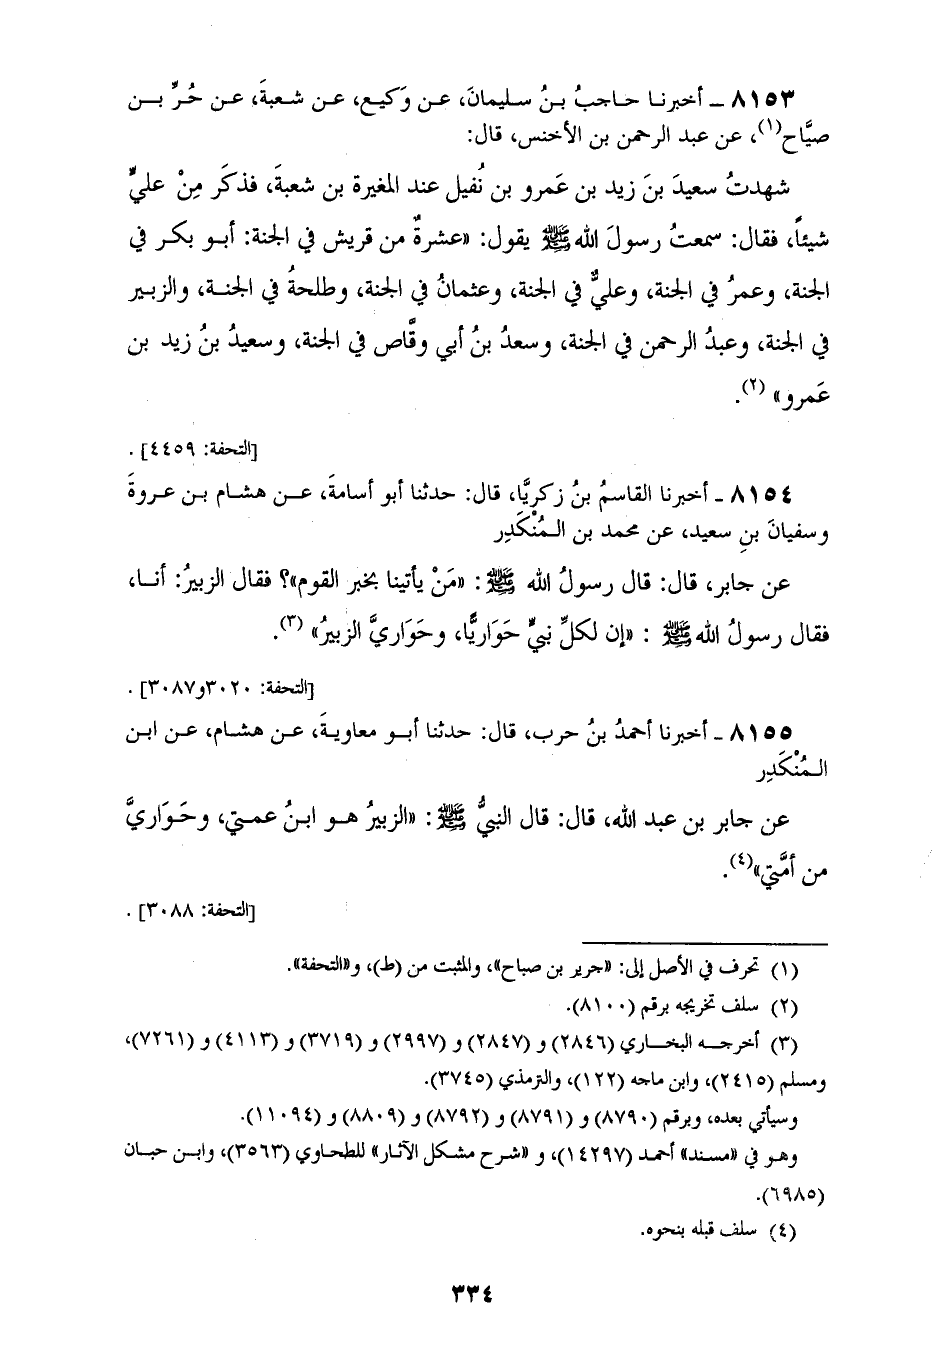 ٨١٥٣ ـ أخبرنا حاجبُ بنُ سليمانَ، عن وَكيع، عن شعبةَ، عن حُرِّ بن
صيَّاح(١)، عن عبد الرحمن بن الأخنس، قال:
شهدتُ سعيدَ بنَ زيد بن عَمرو بن نُفيل عند المغيرة بن شعبةَ، فذكَر مِنْ عليٍّ
شيئاً، فقال: سمعتُ رسولَ اللهﷺ يقول: «عشرةٌ من قريش في الجنة: أبو بكر في
الجنة، وعمرُ في الجنة، وعليٌّ في الجنة، وعثمانُ في الجنة، وطلحةُ في الجنة، والزبير
في الجنة، وعبدُ الرحمن في الجنة، وسعدُ بنُ أبي وقَّاص في الجنة، وسعيدُ بنُ زيد بن
عَمرو» (٢).
[التحفة: ٤٤٥٩] .
٨١٥٤ ـ أخبرنا القاسمُ بنُ زكريَّا، قال: حدثنا أبو أسامةَ، عن هشام بن عروةَ
وسفيانَ بنِ سعيد، عن محمد بن المُنْكَدِر
عن جابر، قال: قال رسولُ الله ﷺ: «مَنْ يأتينا بخبر القوم»؟ فقال الزبيرُ: أنا،
فقال رسولُ اللهﷺ : «إن لكلِّ نبيٍّ حَوَاريًّا، وحَوَاريَّ الزبيرُ» (٣).
[التحفة: ٣٠٢٠و٣٠٨٧] .
٨١٥٥ ـ أخبرنا أحمدُ بنُ حرب، قال: حدثنا أبو معاويةَ، عن هشام، عن ابن
المُنْكَدِر
عن جابر بن عبد الله، قال: قال النبيُّ ﷺ: «الزبيرُ هو ابنُ عمتي، وحَوَاريَّ
من أمَّتي»(٤).
[التحفة: ٣٠٨٨] .
(١) تحرف في الأصل إلى: «جرير بن صباح»، والمثبت من (ط)، و«التحفة».
(٢) سلف تخريجه برقم (٨١٠٠).
(٣) أخرجه البخاري (٢٨٤٦) و (٢٨٤٧) و (٢٩٩٧) و (٣٧١٩) و (٤١١٣) و (٧٢٦١)،
ومسلم (٢٤١٥)، وابن ماجه (١٢٢)، والترمذي (٣٧٤٥).
وسيأتي بعده، وبرقم (٨٧٩٠) و (٨٧٩١) و (٨٧٩٢) و (٨٨٠٩) و (١١٠٩٤).
وهو في «مسند» أحمد (١٤٢٩٧)، و «شرح مشكل الآثار» للطحاوي (٣٥٦٣)، وابن حبان
(٦٩٨٥).
(٤) سلف قبله بنحوه.
٣٣٤